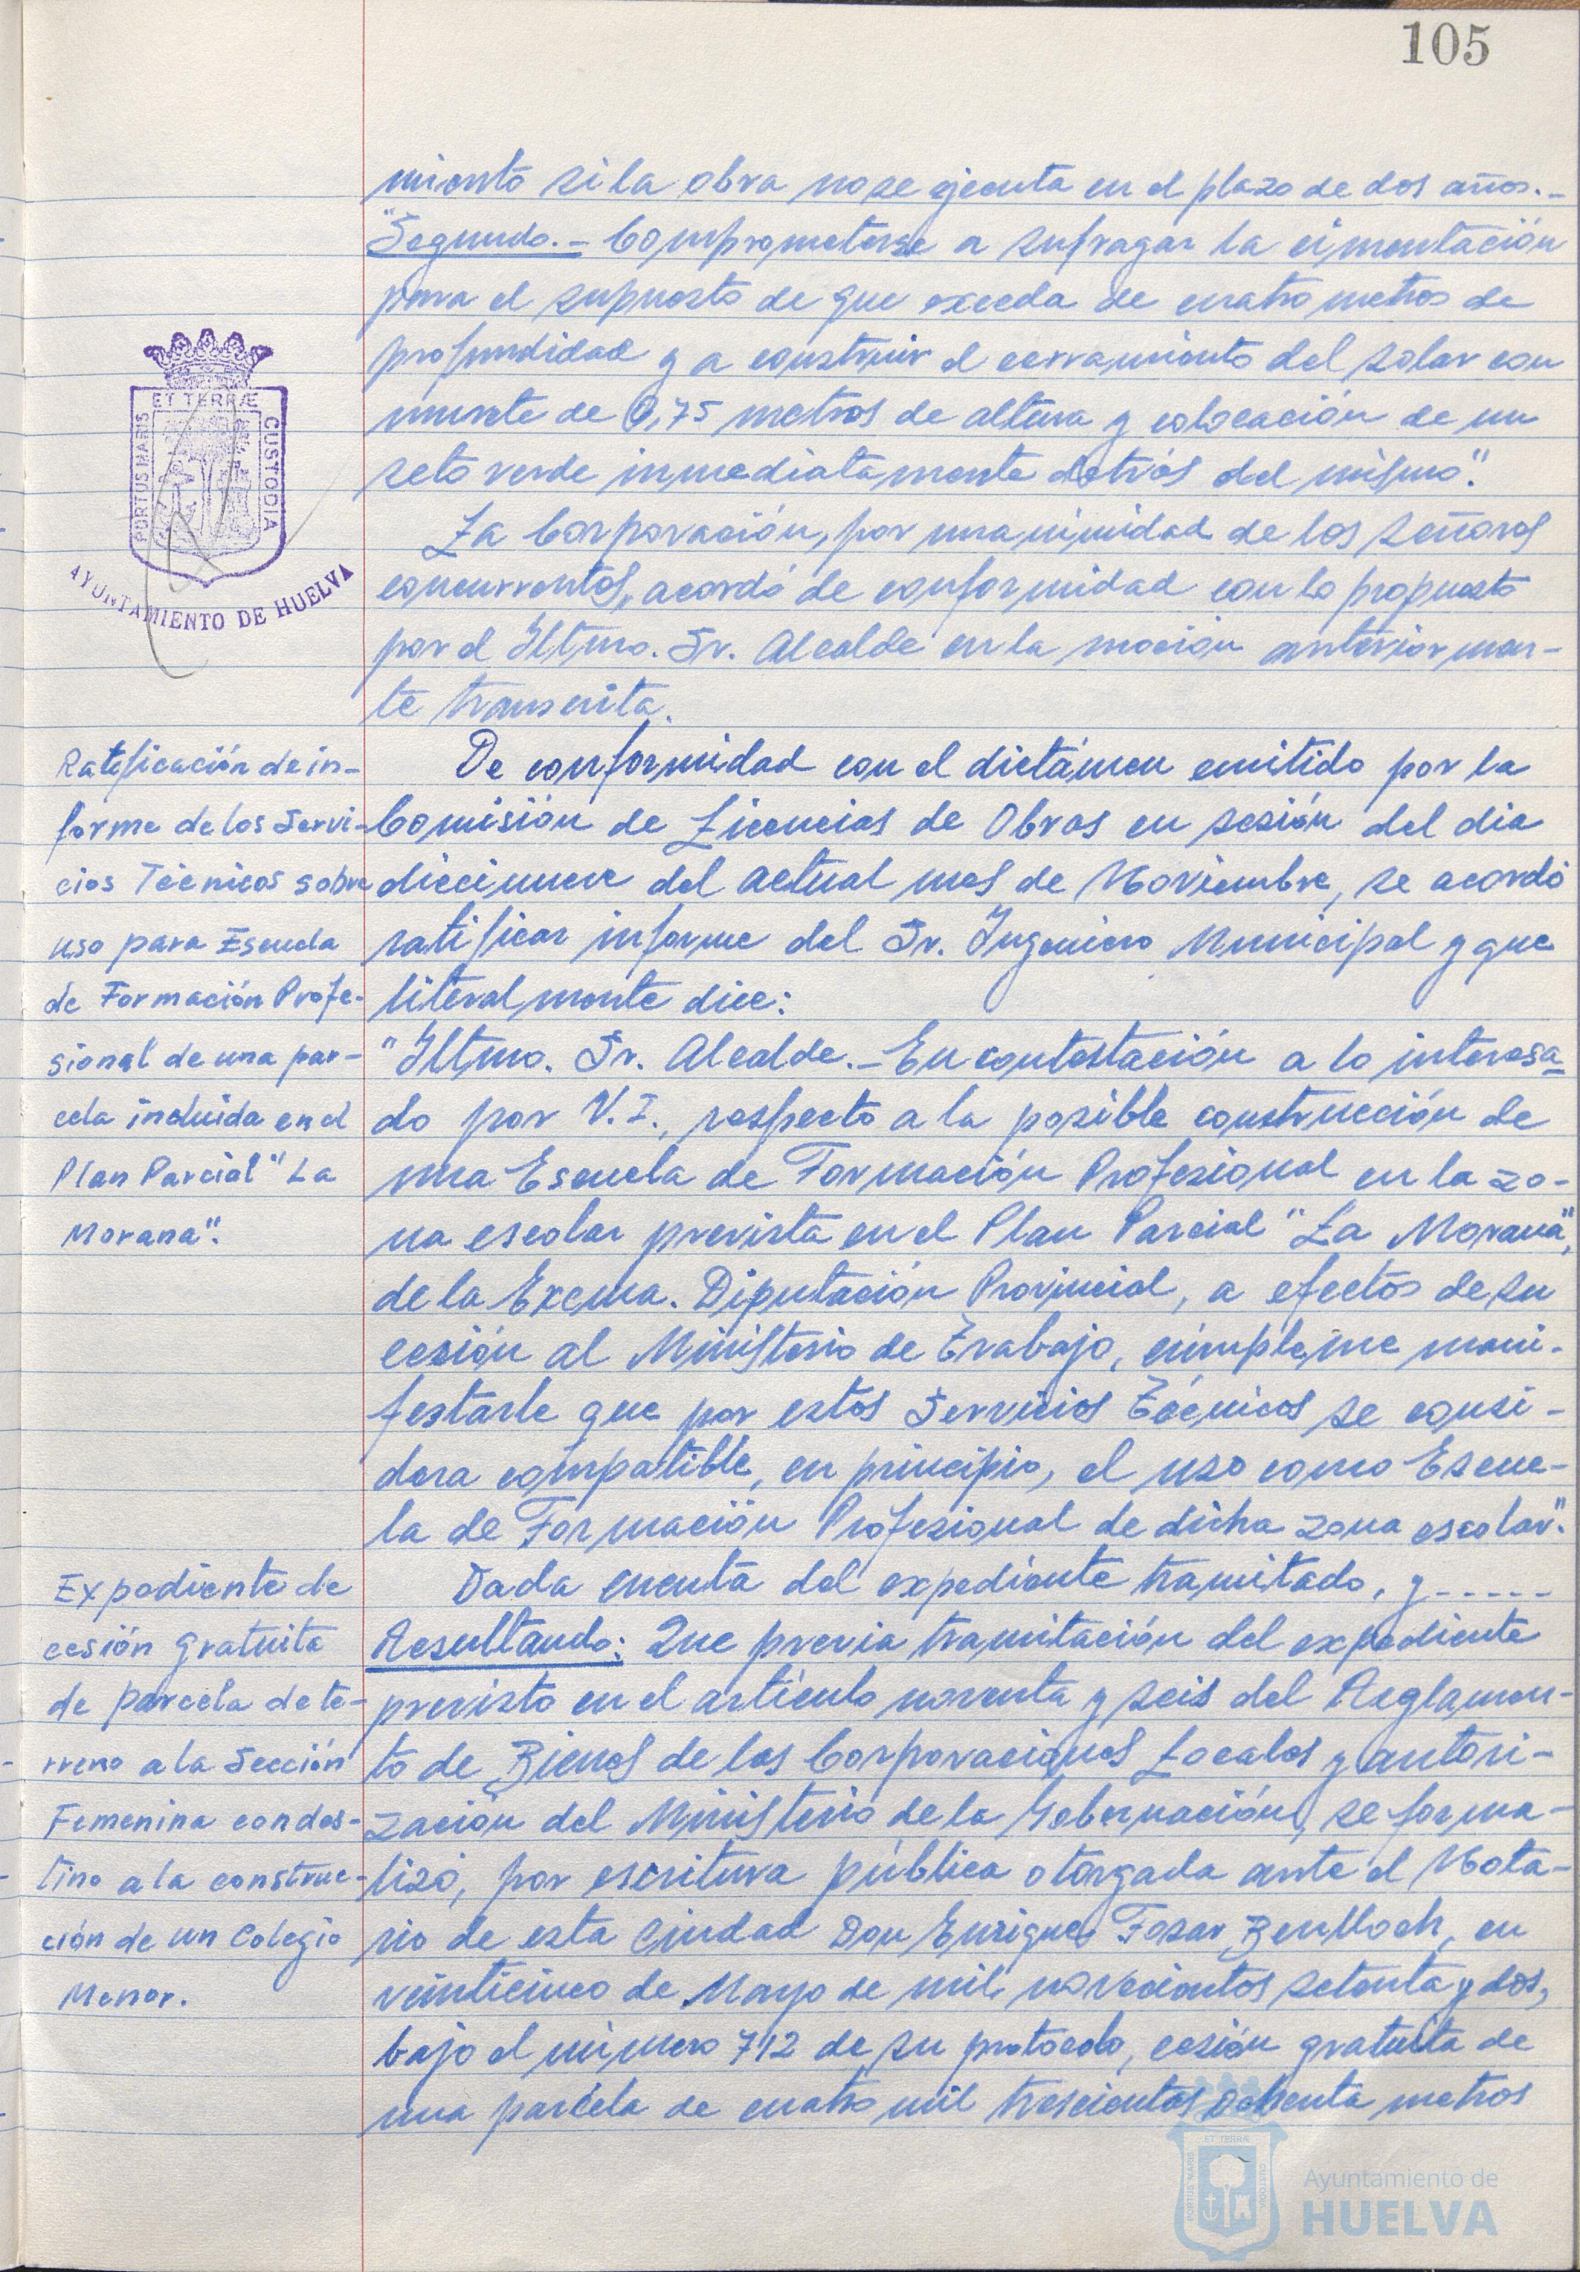 105
miento si la obra no se ejecuta en el plazo de dos años.-
"Segundo.- Comprometerse a sufragar la cimentación
para el supuesto de que exceda de cuatro metros de
profundidad y a construir el cerramiento del solar con
murete de 0,75 metros de altura y colocación de un
seto verde inmediatamente detrás del mismo".
La Corporación, por unanimidad de los señores
concurrentes, acordó de conformidad con lo propuesto
por el Iltmo. Sr. Alcalde en la moción anteriormen-
te transcrita.
ET TERRÆ
PORTUS MARIS
CUSTODIA
AYUNTAMIENTO DE HUELVA
Ratificación de in-
forme de los Servi-
cios Técnicos sobre
uso para Escuela
de Formación Profe-
sional de una par-
cela incluida en el
Plan Parcial "La
Morana".
De conformidad con el dictámen emitido por la
Comisión de Licencias de Obras en sesión del dia
diecinueve del actual mes de Noviembre, se acordó
ratificar informe del Sr. Ingeniero Municipal y que
literalmente dice:
"Iltmo. Sr. Alcalde.- En contestación a lo interesa-
do por V.I., respecto a la posible construcción de
una Escuela de Formación Profesional en la zo-
na escolar prevista en el Plan Parcial "La Morana",
de la Excma. Diputación Provincial, a efectos de su
cesión al Ministerio de Trabajo, cúmpleme mani-
festarle que por estos Servicios Técnicos se consi-
dera compatible, en principio, el uso como Escue-
la de Formación Profesional de dicha zona escolar".
Expediente de
cesión gratuita
de parcela de te-
rreno a la Sección
Femenina con des-
tino a la construc-
ción de un Colegio
Menor.
Dada cuenta del expediente tramitado, y-----
Resultando: Que previa tramitación del expediente
previsto en el artículo noventa y seis del Reglamen-
to de Bienes de las Corporaciones Locales y autori-
zación del Ministerio de la Gobernación, se forma-
lizó, por escritura pública otorgada ante el Nota-
rio de esta Ciudad Don Enrique Fosar Benlloch, en
veinticinco de Mayo de mil novecientos setenta y dos,
bajo el número 712 de su protocolo, cesión gratuita de
una parcela de cuatro mil trescientos ochenta metros
ET TERRÆ
PORTUS MARIS
CUSTODIA
Ayuntamiento de
HUELVA